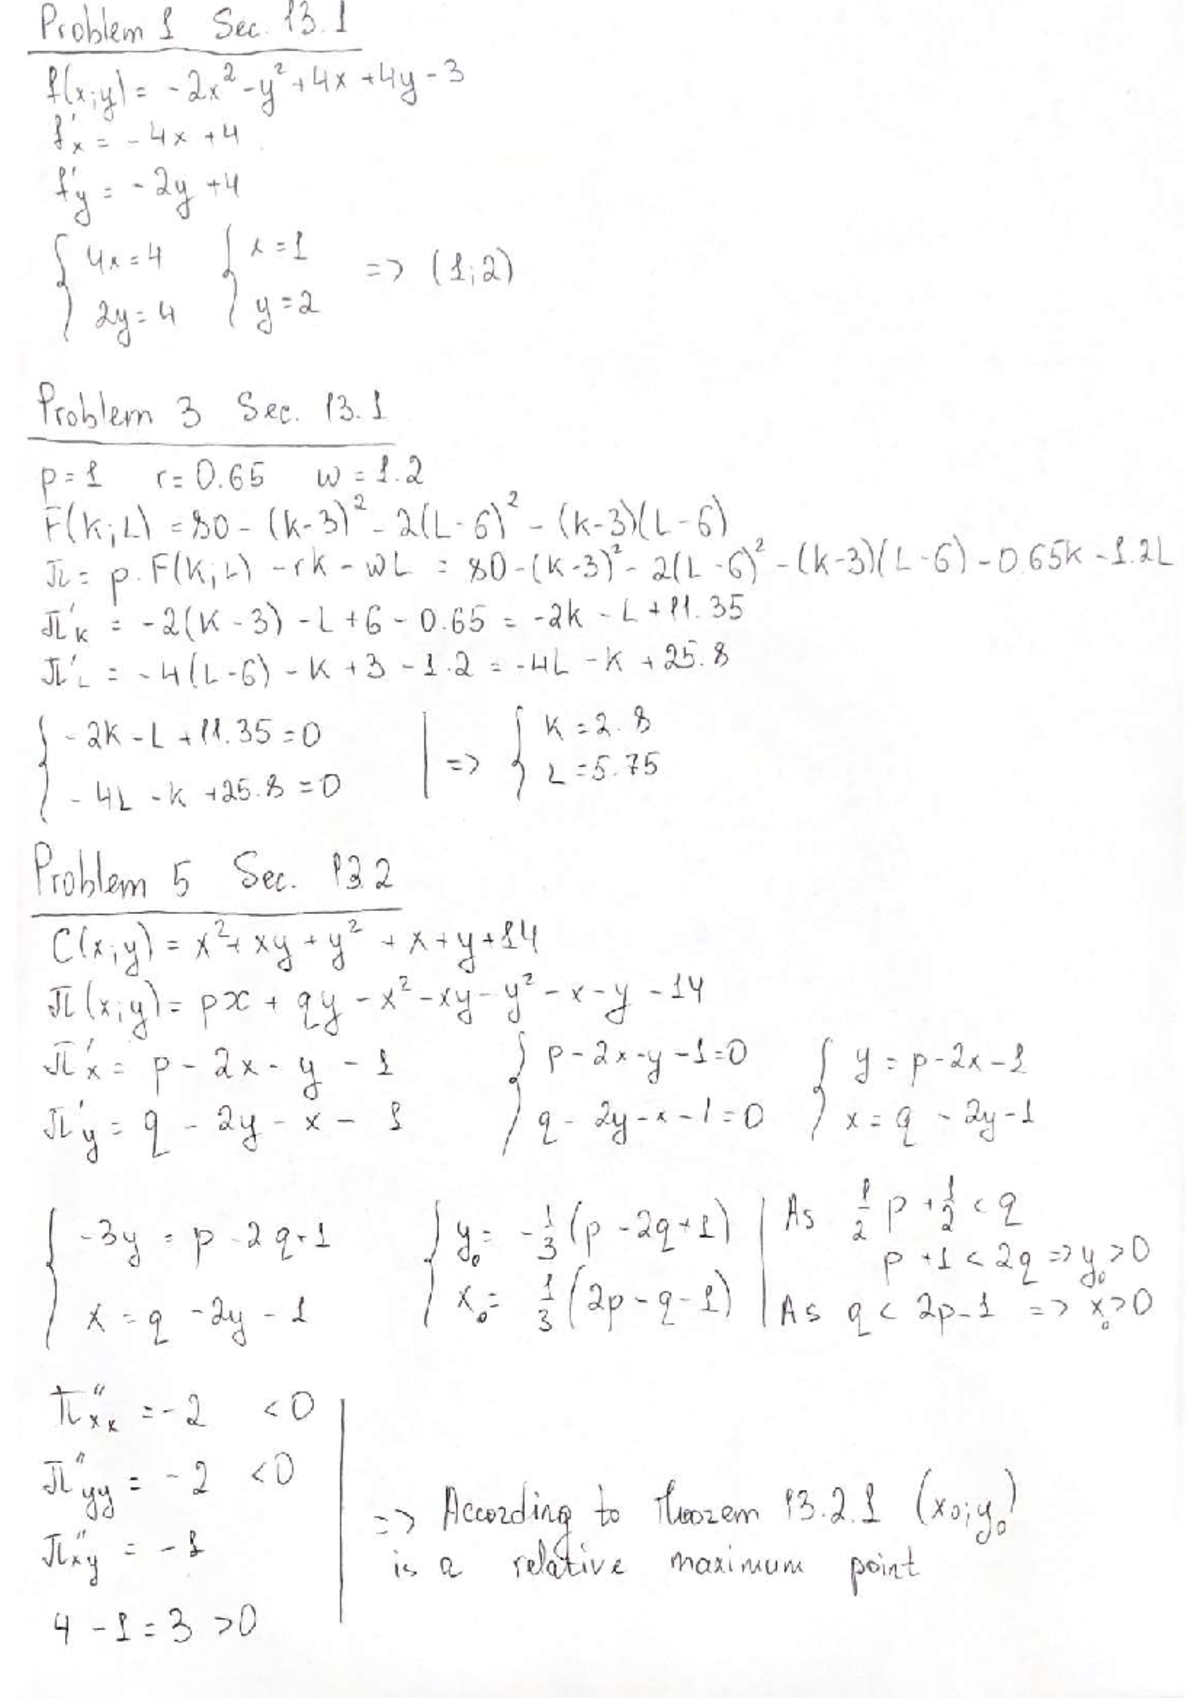 Problem 1 Sec. 13.1
f(x;y) = -2x² - y² + 4x + 4y - 3
f'x = -4x + 4
f'y = -2y + 4
{ 4x = 4 { x = 1 => (1;2)
2y = 4 y = 2
Problem 3 Sec. 13.1
p = 1 r = 0.65 w = 1.2
F(K;L) = 80 - (k-3)² - 2(L-6)² - (k-3)(L-6)
π = p.F(K;L) - rk - wL = 80 - (k-3)² - 2(L-6)² - (k-3)(L-6) - 0.65k - 1.2L
π'K = -2(K-3) - L + 6 - 0.65 = -2k - L + 11.35
π'L = -4(L-6) - K + 3 - 1.2 = -4L - K + 25.8
{ -2K - L + 11.35 = 0 | => { K = 2.8
-4L - K + 25.8 = 0 L = 5.75
Problem 5 Sec. 13.2
C(x;y) = x² + xy + y² + x + y + 14
π(x;y) = px + qy - x² - xy - y² - x - y - 14
π'x = p - 2x - y - 1 { p - 2x - y - 1 = 0 { y = p - 2x - 1
π'y = q - 2y - x - 1 q - 2y - x - 1 = 0 x = q - 2y - 1
{ -3y = p - 2q + 1 { y₀ = -1/3 (p - 2q + 1) | As 1/2 p + 1/2 < q
p + 1 < 2q => y₀ > 0
x = q - 2y - 1 x₀ = 1/3 (2p - q - 1) | As q < 2p - 1 => x₀ > 0
π''xx = -2 < 0
π''yy = -2 < 0
π''xy = -1
=> According to Theorem 13.2.1 (x₀;y₀)
is a relative maximum point
4 - 1 = 3 > 0